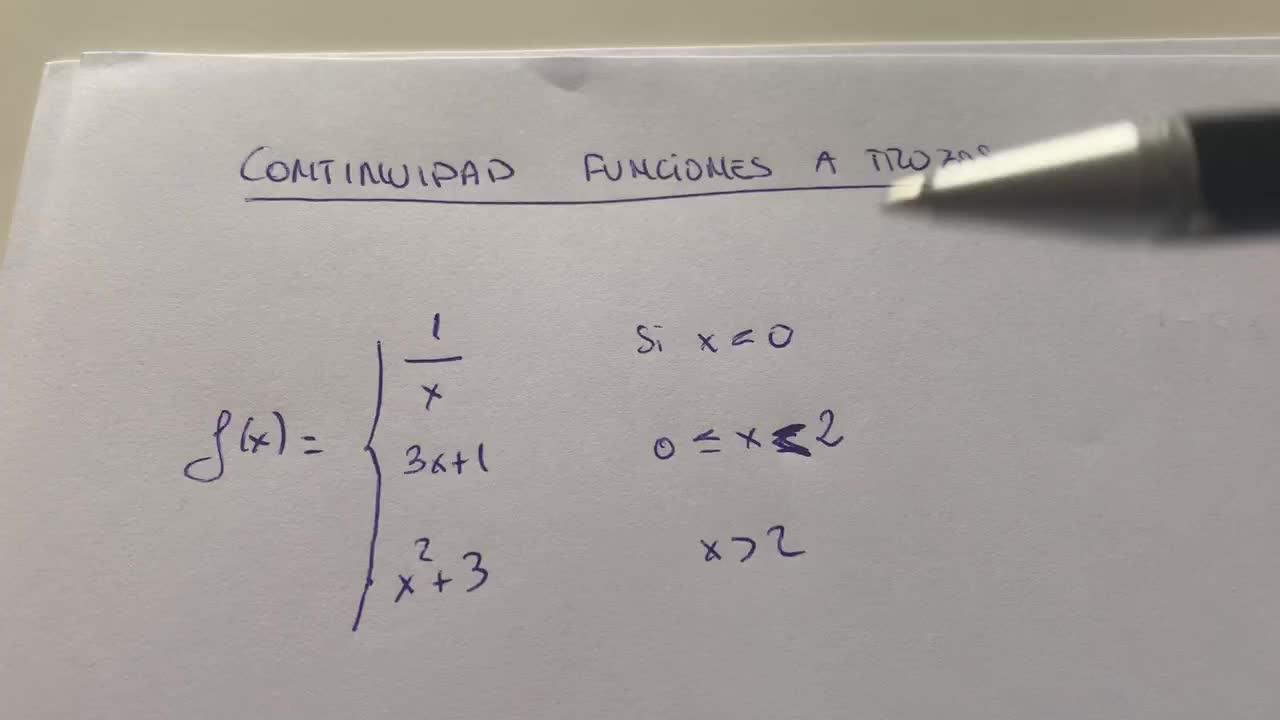 CONTINUIDAD FUNCIONES A TROZOS
1/x si x < 0
f(x) = { 3x+1 0 ≤ x < 2
x²+3 x > 2